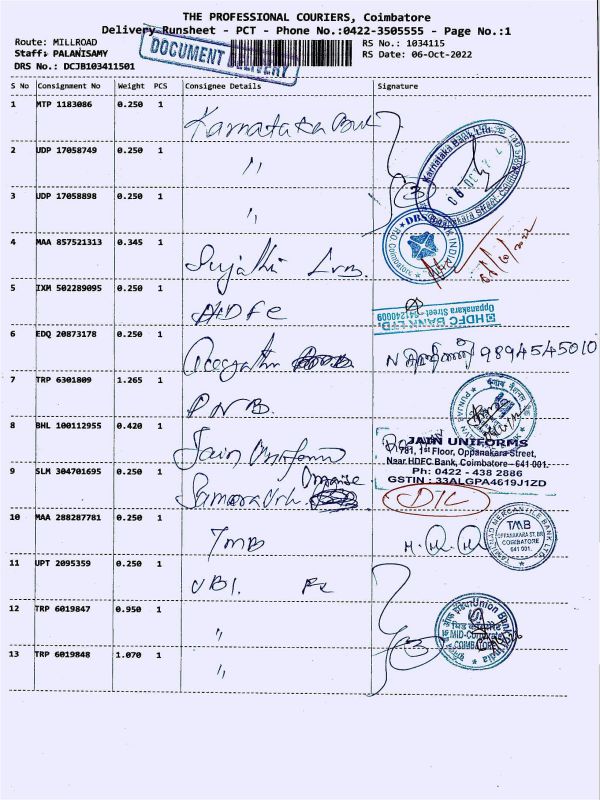 THE PROFESSIONAL COURIERS, Coimbatore
Delivery Runsheet - PCT - Phone No.:0422-3505555 - Page No.:1
Route: MILLROAD
RS No.: 1034115
Staff: PALANISAMY
DOCUMENT DELIVERY
RS Date: 06-Oct-2022
DRS No.: DCJB103411501
S No Consignment No Weight PCS Consignee Details Signature
1 MTP 1183086 0.250 1 Karnataka Bank
2 UDP 17058749 0.250 1 "
Karnataka Bank Ltd.
Oppanakara Street, Coimbatore
3 UDP 17058898 0.250 1 " 3
4 MAA 857521313 0.345 1 Sujathi
5 IXM 502289095 0.250 1 HDFC
HDFC BANK LTD.
Oppanakara Street
6 EDQ 20873178 0.250 1 9894545010
7 TRP 6301809 1.265 1 PNB.
8 BHL 100112955 0.420 1 Jain Uniforms
JAIN UNIFORMS
1st Floor, Oppanakara Street,
Naar HDFC Bank, Coimbatore - 641 001.
Ph: 0422 - 438 2886
GSTIN : 33ALGPA4619J1ZD
9 SLM 304701695 0.250 1
10 MAA 288287781 0.250 1 TMB
TAMILNAD MERCANTILE BANK LTD
TMB
OPPANAKARA ST. BR
COIMBATORE
641 001.
11 UPT 2095359 0.250 1 UBI.
12 TRP 6019847 0.950 1 "
Union Bank of India
MID-Corporate
COIMBATORE
13 TRP 6019848 1.070 1 " 3